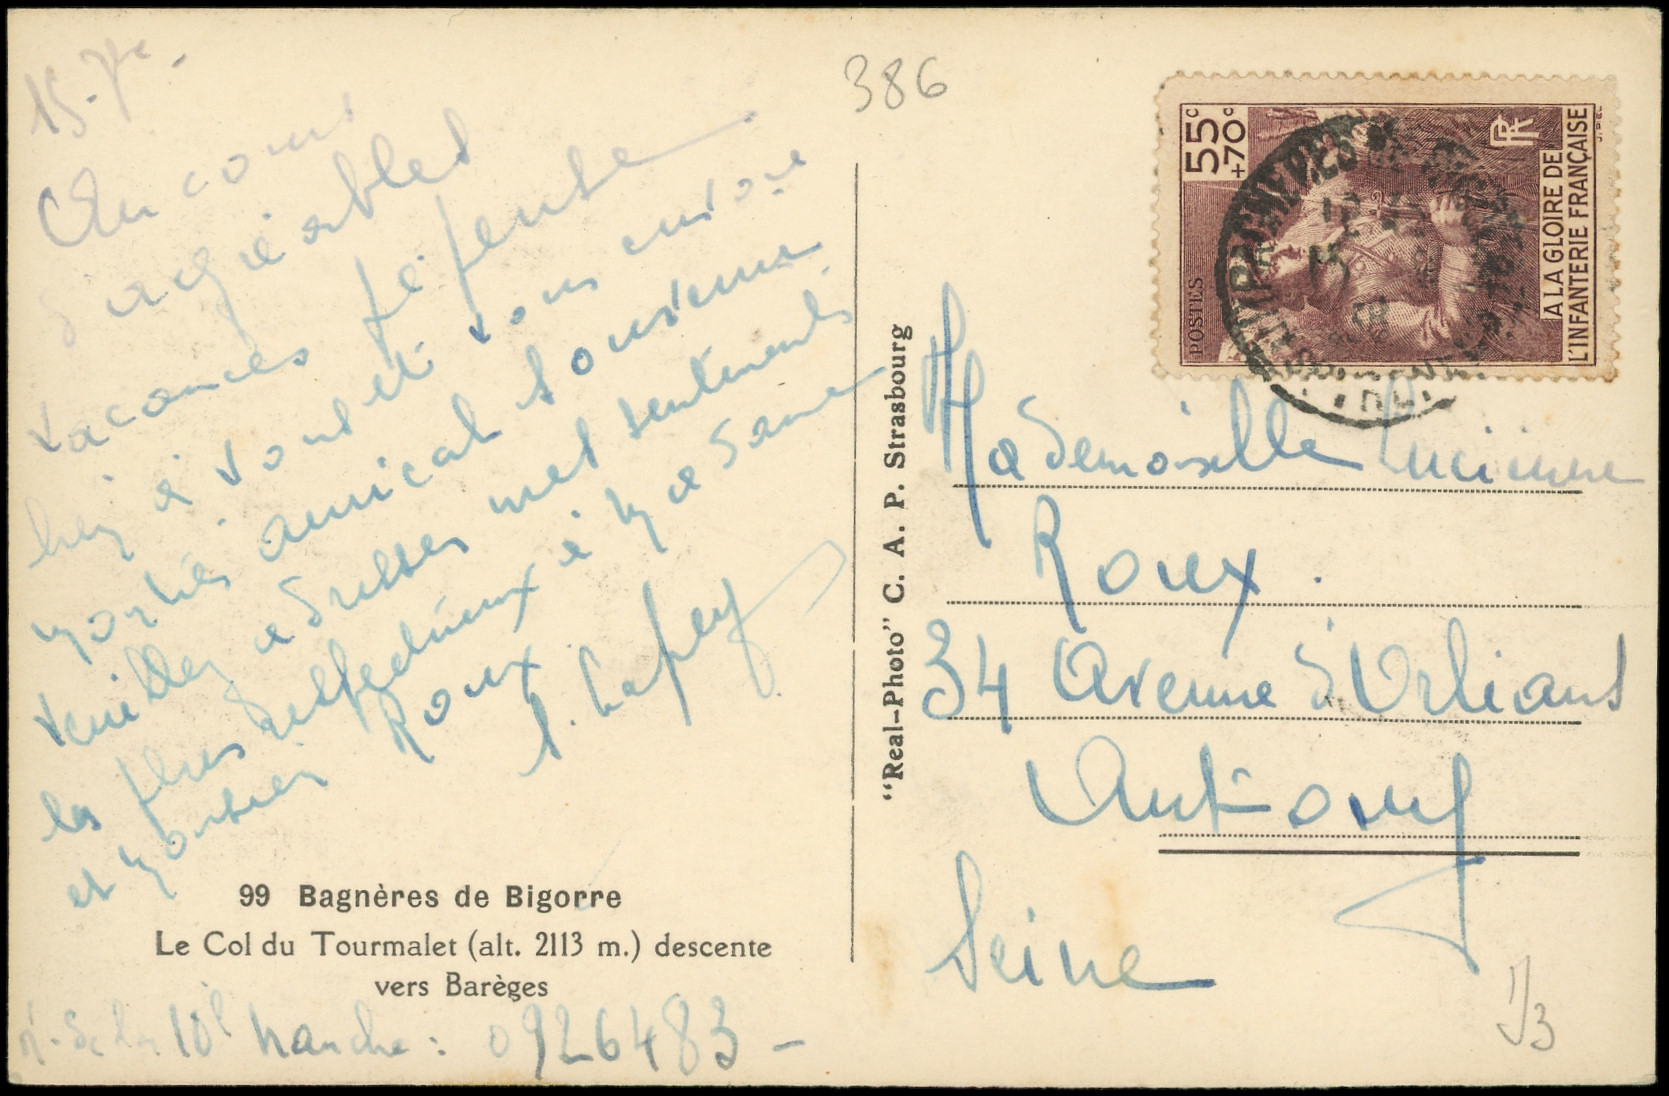 15-7re-
Au cours
d'agréables
vacances je pense
bien à vous et vous envoie
mon très amical souvenir
Veuillez adresser mes sentiments
les plus respectueux à Madame
et Monsieur Roux.
99 Bagnères de Bigorre
Le Col du Tourmalet (alt. 2113 m.) descente
vers Barèges
n° de la 10e tranche : 0926483 -
"Real-Photo" C. A. P. Strasbourg
386
55c
+70c
POSTES
RF
A LA GLOIRE DE
L'INFANTERIE FRANÇAISE
Mademoiselle Lucienne
Roux.
34 Avenue d'Orléans
Antony
Seine
1/3